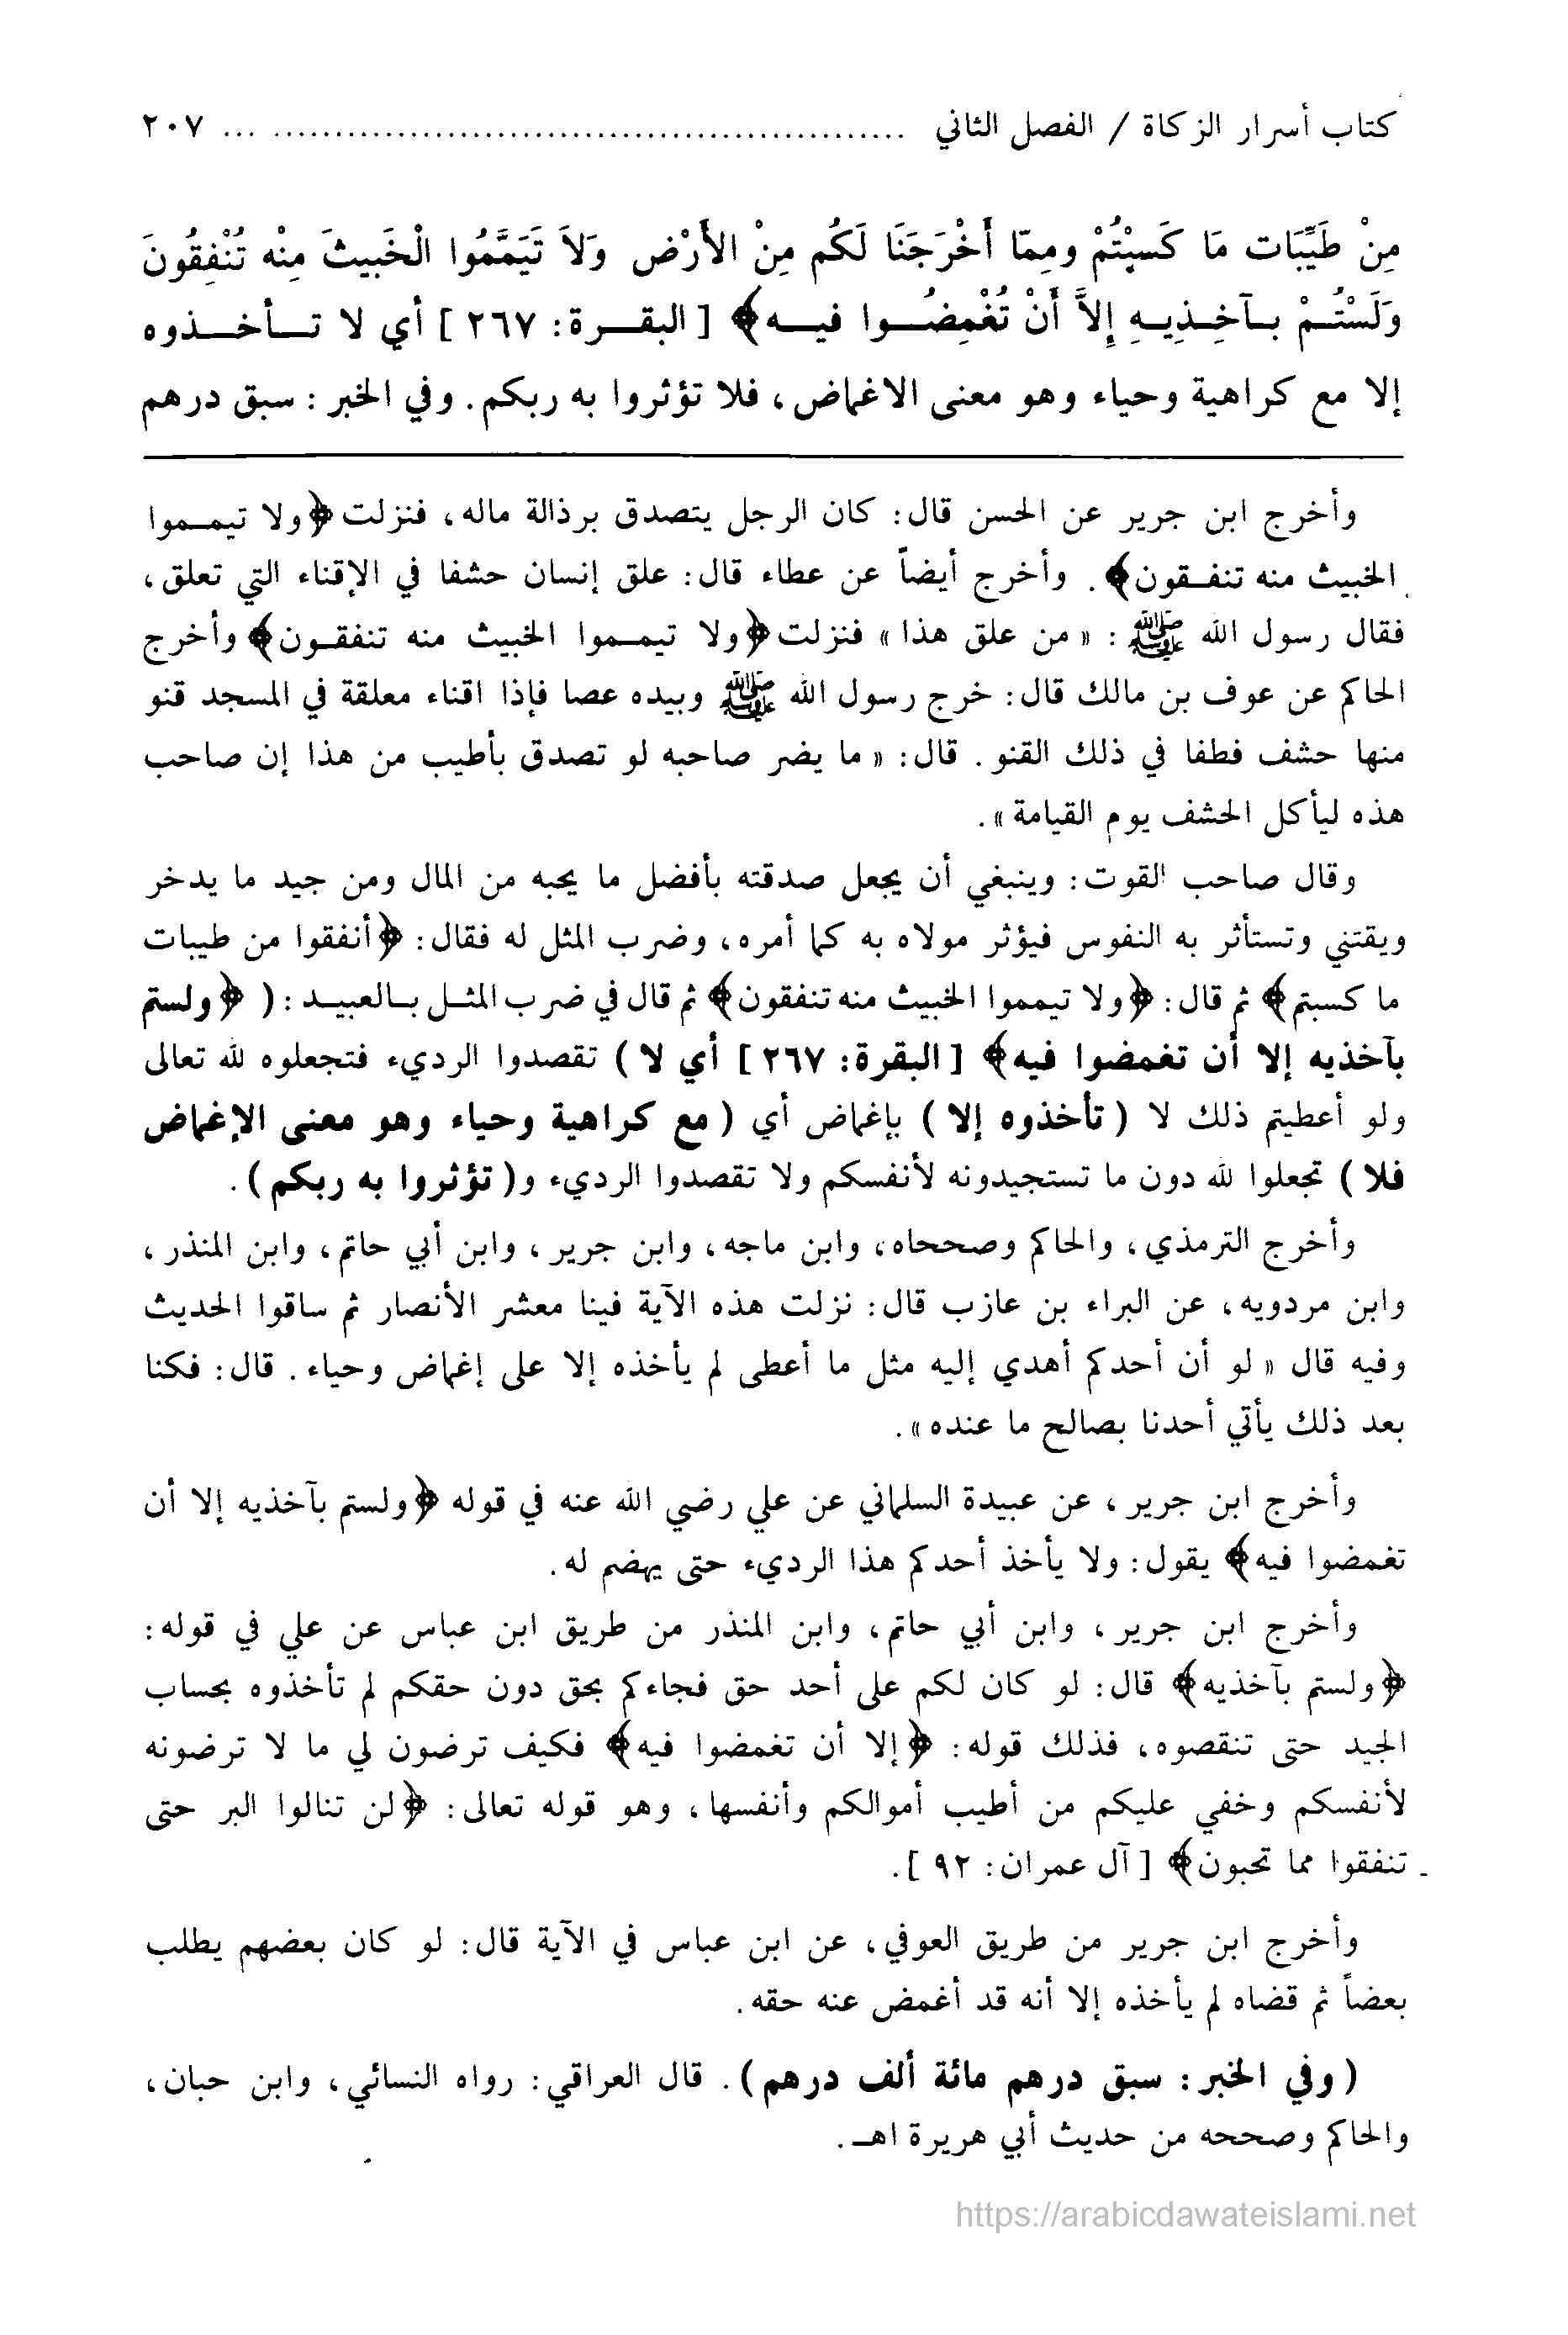 كتاب أسرار الزكاة / الفصل الثاني ................................................... ٢٠٧
مِنْ طَيِّبَات مَا كَسبْتُمْ ومِمّا أَخْرَجَنَا لَكُم مِنْ الأَرْض وَلاَ تَيَمَّمُوا الْخَبيثَ مِنْه تُنْفِقُونَ
وَلَسْتُمْ بآخِذِيهِ إِلاَّ أَنْ تُغْمِضُوا فيه﴾ [ البقرة: ٢٦٧ ] أي لا تأخذوه
إلا مع كراهية وحياء وهو معنى الاغماض، فلا تؤثروا به ربكم. وفي الخبر : سبق درهم
وأخرج ابن جرير عن الحسن قال: كان الرجل يتصدق برذالة ماله، فنزلت ﴿ولا تيمموا
الخبيث منه تنفقون﴾. وأخرج أيضاً عن عطاء قال: علق إنسان حشفا في الإقناء التي تعلق،
فقال رسول الله ﷺ : « من علق هذا » فنزلت ﴿ولا تيمموا الخبيث منه تنفقون﴾ وأخرج
الحاكم عن عوف بن مالك قال: خرج رسول الله ﷺ وبيده عصا فإذا اقناء معلقة في المسجد قنو
منها حشف فطفا في ذلك القنو. قال: « ما يضر صاحبه لو تصدق بأطيب من هذا إن صاحب
هذه ليأكل الحشف يوم القيامة ».
وقال صاحب القوت: وينبغي أن يجعل صدقته بأفضل ما يحبه من المال ومن جيد ما يدخر
ويقتني وتستأثر به النفوس فيؤثر مولاه به كما أمره، وضرب المثل له فقال: ﴿أنفقوا من طيبات
ما كسبتم﴾ ثم قال: ﴿ولا تيمموا الخبيث منه تنفقون﴾ ثم قال في ضرب المثل بالعبيد: ( ﴿ولستم
بآخذيه إلا أن تغمضوا فيه﴾ [ البقرة: ٢٦٧ ] أي لا ) تقصدوا الرديء فتجعلوه لله تعالى
ولو أعطيتم ذلك لا ( تأخذوه إلا ) بإغماض أي ( مع كراهية وحياء وهو معنى الإغماض
فلا ) تجعلوا لله دون ما تستجيدونه لأنفسكم ولا تقصدوا الرديء و( تؤثروا به ربكم ).
وأخرج الترمذي، والحاكم وصححاه، وابن ماجه، وابن جرير، وابن أبي حاتم، وابن المنذر،
وابن مردويه، عن البراء بن عازب قال: نزلت هذه الآية فينا معشر الأنصار ثم ساقوا الحديث
وفيه قال « لو أن أحدكم أهدي إليه مثل ما أعطى لم يأخذه إلا على إغماض وحياء. قال: فكنا
بعد ذلك يأتي أحدنا بصالح ما عنده ».
وأخرج ابن جرير، عن عبيدة السلماني عن علي رضي الله عنه في قوله ﴿ولستم بآخذيه إلا أن
تغمضوا فيه﴾ يقول: ولا يأخذ أحدكم هذا الرديء حتى يهضم له.
وأخرج ابن جرير، وابن أبي حاتم، وابن المنذر من طريق ابن عباس عن علي في قوله:
﴿ولستم بآخذيه﴾ قال: لو كان لكم على أحد حق فجاءكم بحق دون حقكم لم تأخذوه بحساب
الجيد حتى تنقصوه، فذلك قوله: ﴿إلا أن تغمضوا فيه﴾ فكيف ترضون لي ما لا ترضونه
لأنفسكم وخفي عليكم من أطيب أموالكم وأنفسها، وهو قوله تعالى: ﴿لن تنالوا البر حتى
تنفقوا مما تحبون﴾ [ آل عمران: ٩٢ ].
وأخرج ابن جرير من طريق العوفي، عن ابن عباس في الآية قال: لو كان بعضهم يطلب
بعضاً ثم قضاه لم يأخذه إلا أنه قد أغمض عنه حقه.
( وفي الخبر : سبق درهم مائة ألف درهم ). قال العراقي: رواه النسائي، وابن حبان،
والحاكم وصححه من حديث أبي هريرة اهـ.
https://arabicdawateislami.net